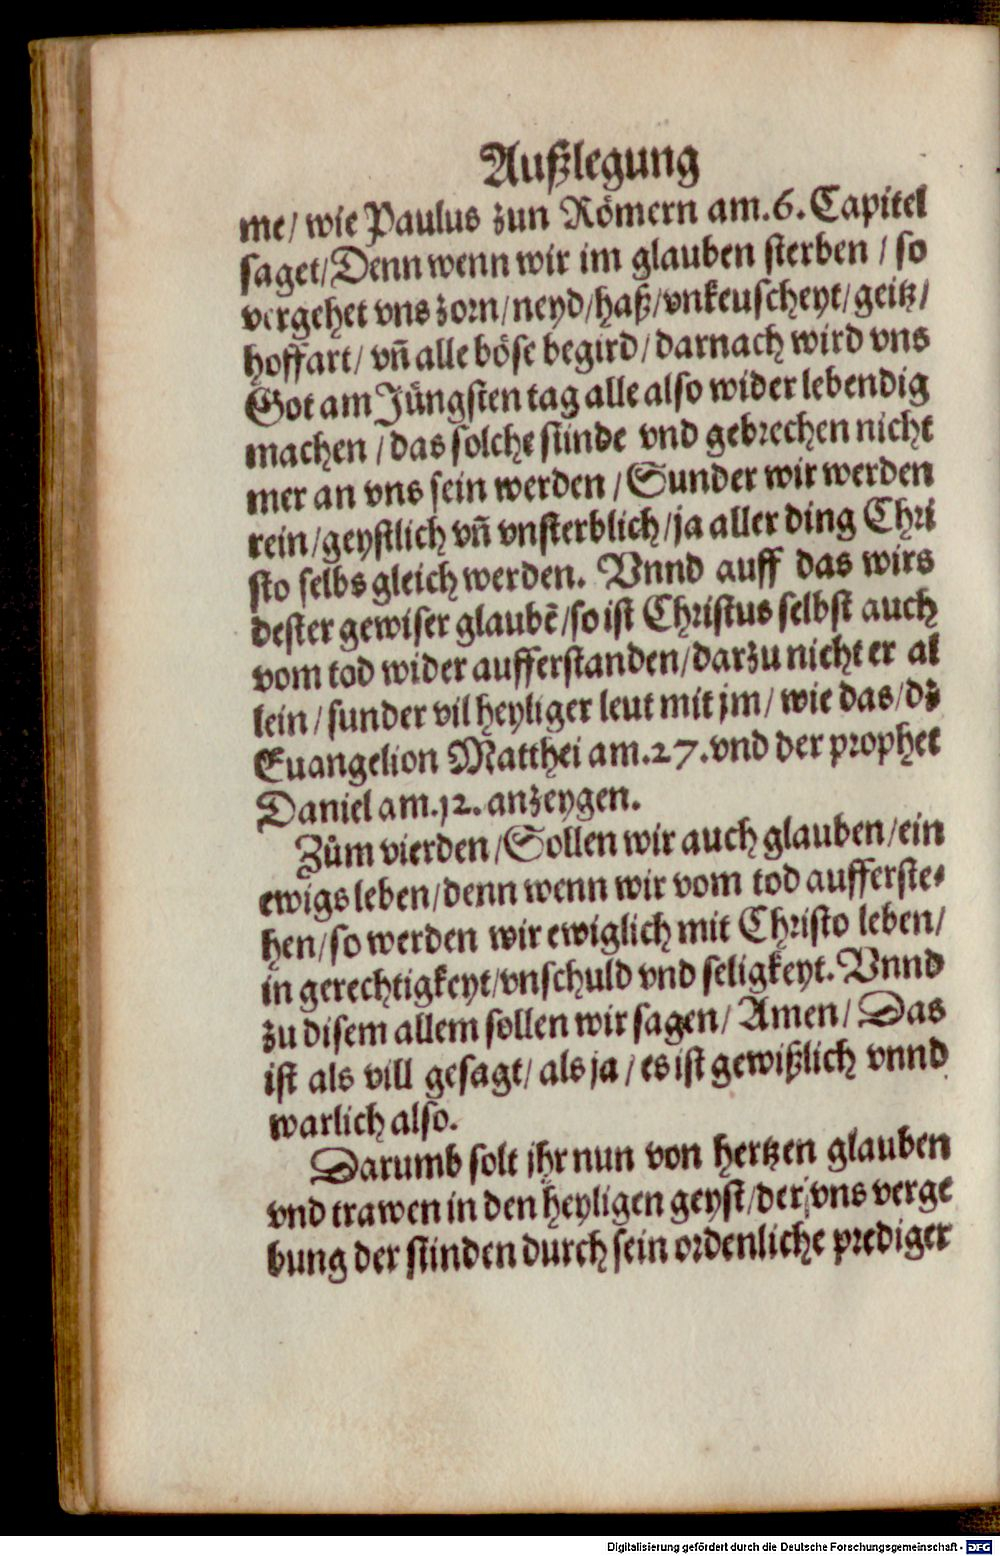 Außlegung
me/ wie Paulus zun Römern am.6. Capitel
saget/Denn wenn wir im glauben sterben / so
vergehet vns zorn/neyd/haß/vnkeuscheyt/geitz/
hoffart/ vñ alle böse begird/darnach wird vns
Got am Jüngsten tag alle also wider lebendig
machen /das solche sünde vnd gebrechen nicht
mer an vns sein werden /Sunder wir werden
rein/geystlich vñ vnsterblich/ja aller ding Chri
sto selbs gleich werden. Vnnd auff das wirs
dester gewiser glaubẽ/so ist Christus selbst auch
vom tod wider aufferstanden/darzu nicht er al
lein/sunder vil heyliger leut mit jm/ wie das/dz
Euangelion Matthei am.27.vnd der prophet
Daniel am.12. anzeygen.
Zům vierden/Sollen wir auch glauben/ein
ewigs leben/denn wenn wir vom tod aufferste⸗
hen/so werden wir ewiglich mit Christo leben/
in gerechtigkeyt/vnschuld vnd seligkeyt. Vnnd
zu disem allem sollen wir sagen/ Amen/ Das
ist als vill gesagt/ als ja/ es ist gewißlich vnnd
warlich also.
Darumb solt jhr nun von hertzen glauben
vnd trawen in den heyligen geyst/der vns verge
bung der sünden durch sein ordenliche prediger
Digitalisierung gefördert durch die Deutsche Forschungsgemeinschaft - DFG